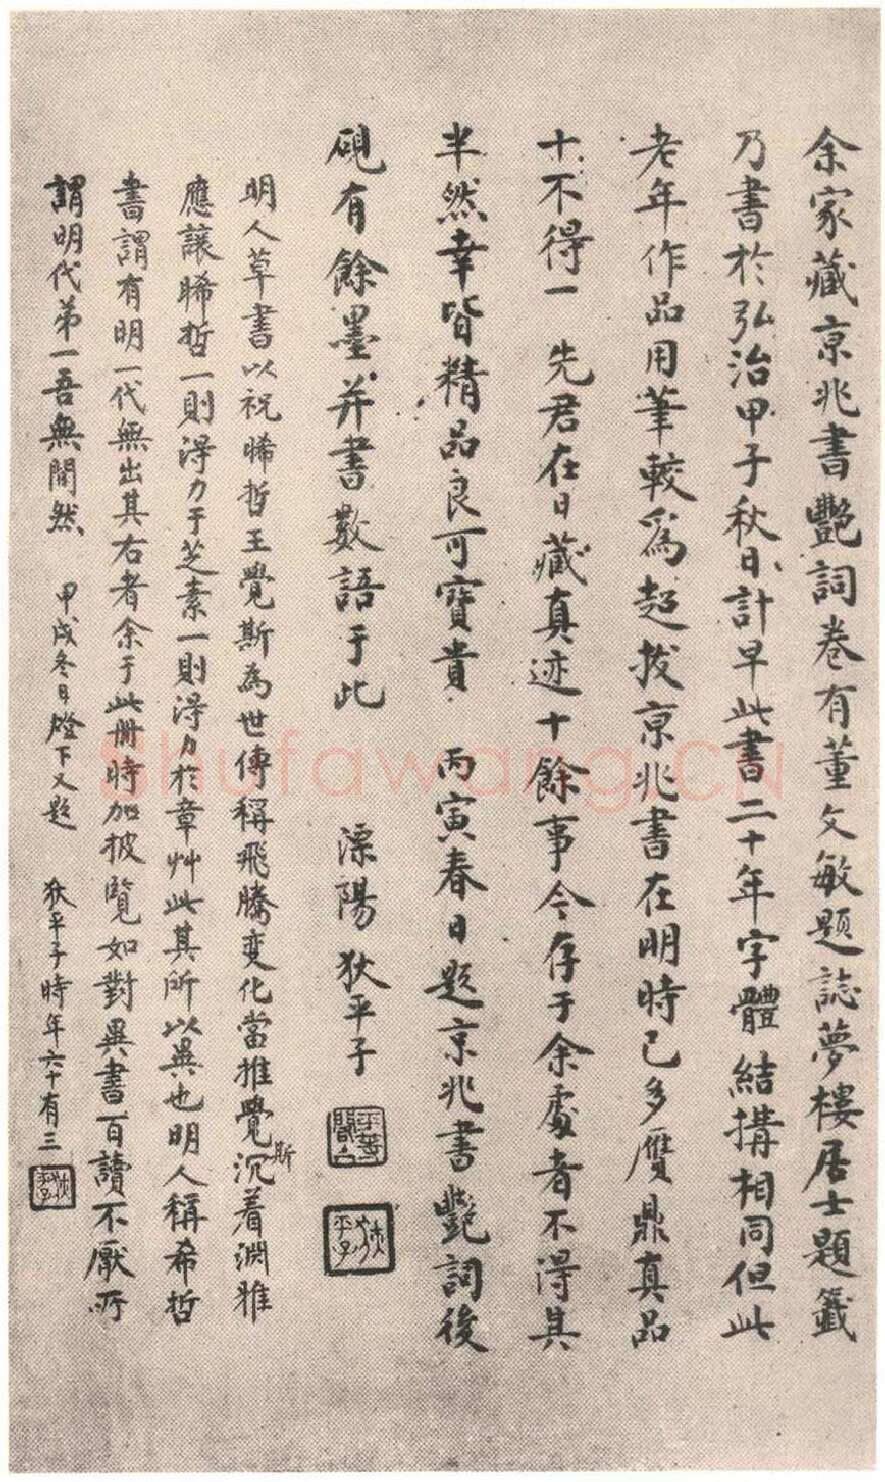 余家藏京兆書艷詞卷有董文敏題誌夢樓居士題籤
乃書於弘治甲子秋日計早此書二十年字體結搆相同但此
老年作品用筆較爲超拔京兆書在明時已多贋鼎真品
十不得一 先君在日藏真迹十餘事今存于余處者不得其
半然幸皆精品良可寶貴 丙寅春日題京兆書艷詞後
硯有餘墨并書數語于此 溧陽狄平子
狄平子
明人草書以祝晞哲王覺斯為世傳稱飛騰变化當推覺斯沉着淵雅
應讓晞哲一則得力于芝素一則得力於章艸此其所以異也明人稱希哲
書謂有明一代無出其右者余于此冊時加披覽如對異書百讀不厭所
謂明代第一吾無間然 甲戌冬日燈下又題 狄平子時年六十有三
狄平子
Shufawang.CN